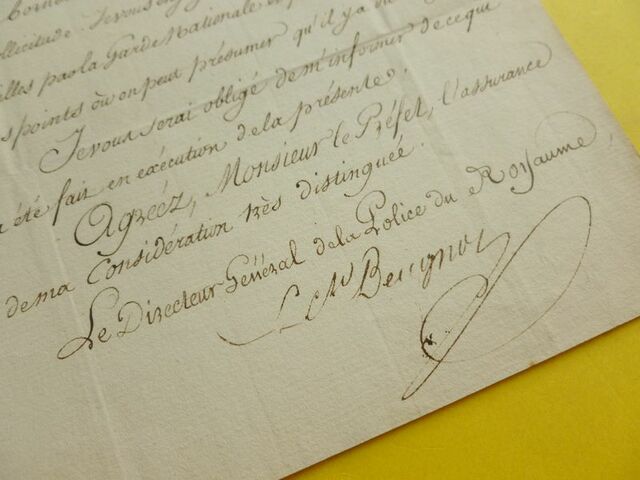 ollicitude. Je vous
illes par la Garde Nationale
s points où on peut présumer qu'il y a
Je vous serai obligé de m'informer de ce qui
a été fait en exécution de la présente.
Agréez, Monsieur le Préfet, l'assurance
de ma Considération très distinguée.
Le Directeur Général de la Police du Royaume,
Beugnot